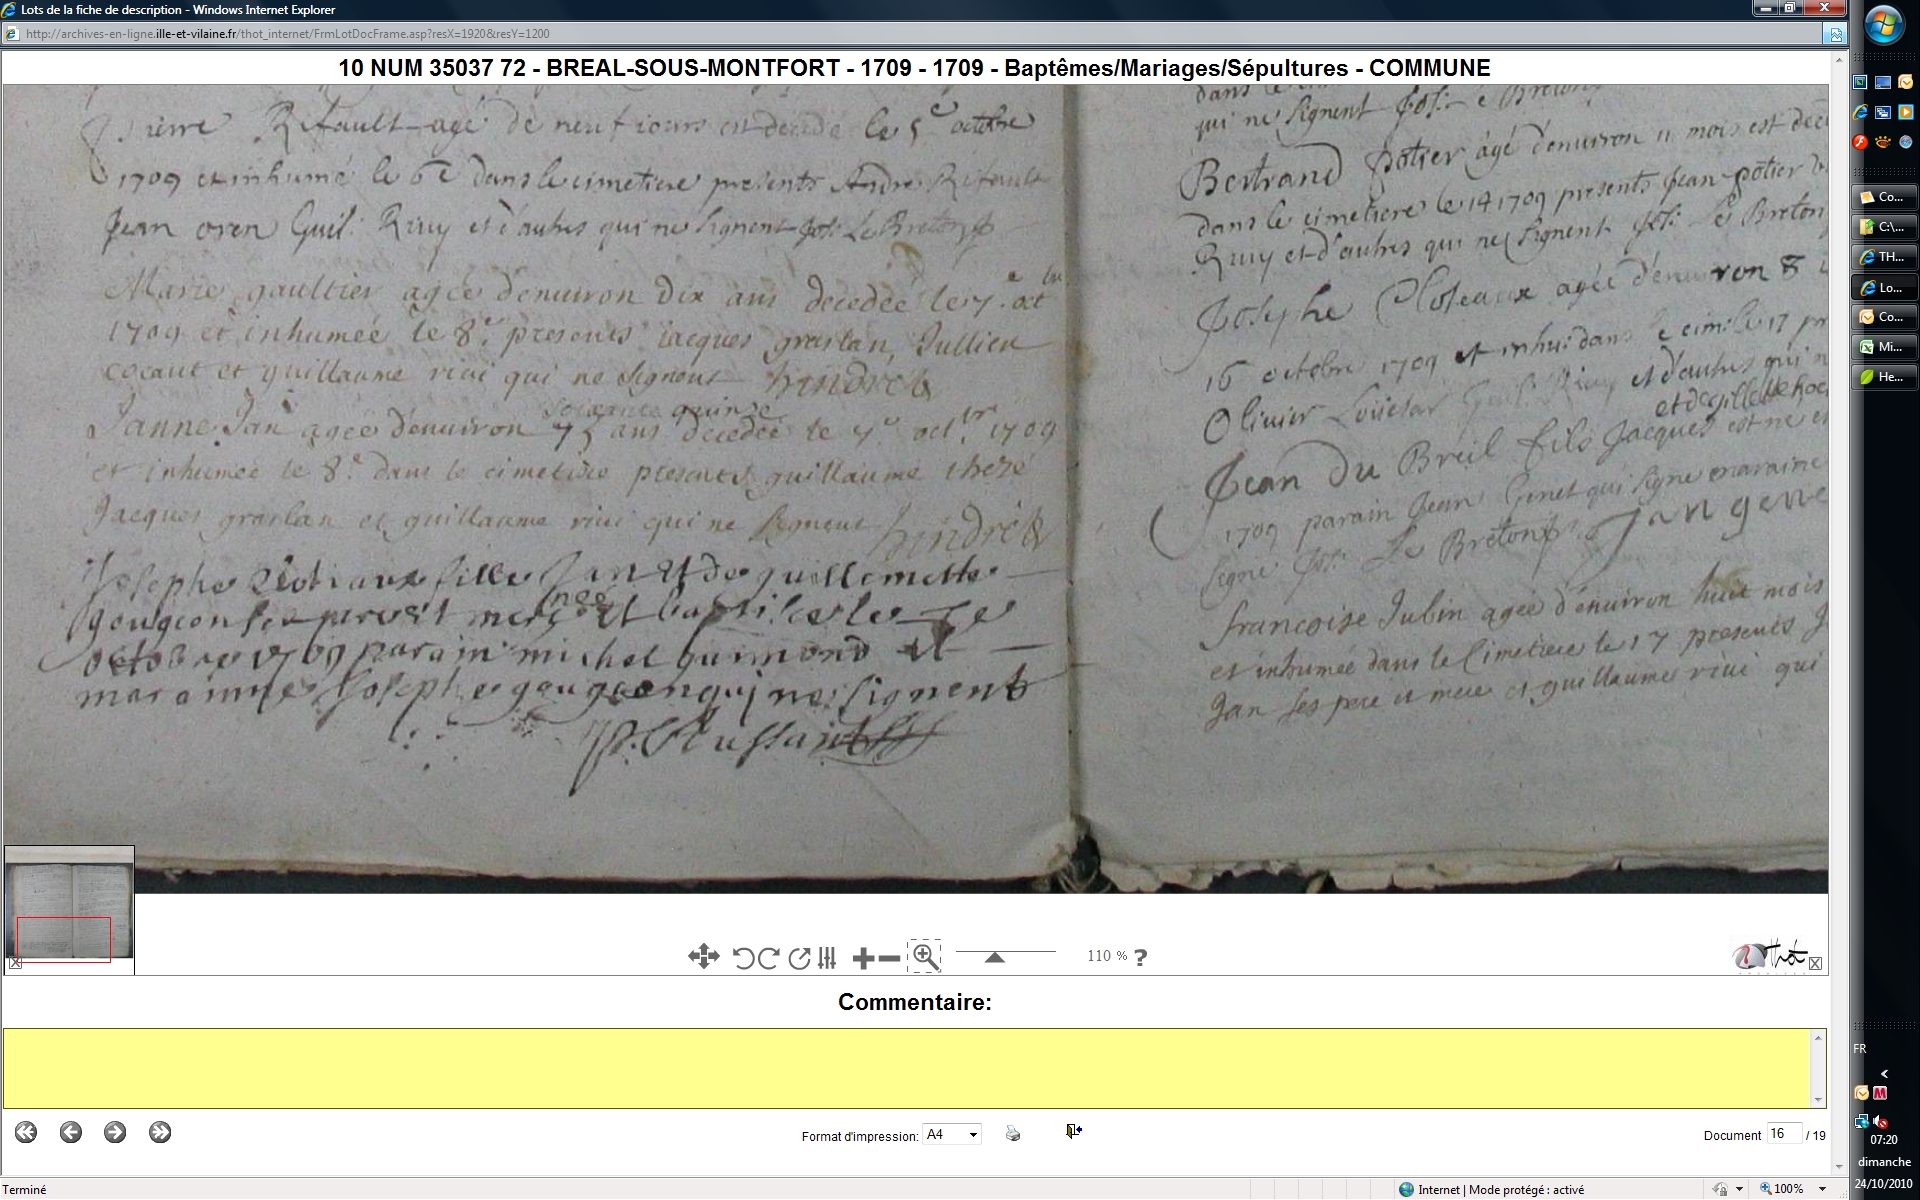 Lots de la fiche de description - Windows Internet Explorer
http://archives-en-ligne.ille-et-vilaine.fr/thot_internet/FrmLotDocFrame.asp?resX=1920&resY=1200
10 NUM 35037 72 - BREAL-SOUS-MONTFORT - 1709 - 1709 - Baptêmes/Mariages/Sépultures - COMMUNE
agé de neuf iours est decede le 5e octobre
1709 et inhumé le 6e dans le cimetiere presents André
Jean oren Guil: Rivy et d'autres qui ne signent Jos: Le Breton
Marie gaultier agée d'enuiron dix ans decedée le 7e oct
1709 et inhumée le 8e presents iacques graslan, Jullien
cocaut et guillaume riui qui ne signent
soixante quinze
Janne Jan agée d'enuiron 75 ans decedée le 7e octbr 1709
et inhumée le 8e dans le cimetiere presents guillaume
Jacques graslan et guillaume riui qui ne signent
Josephe fille Jan et de guillemette
née
et baptisée le
octobre 1709 parain michel guimond et
maraine Josephe gougeon qui ne signent
dans le
qui ne signent Jos: Le Breton
Bertrand potier agé d'enuiron 11 mois est
dans le cimetiere le 14 1709 presents Jean potier
Rivy et d'autres qui ne signent Jos: Le Breton
Josephe agée d'enuiron 8
16 octobre 1709 et inhu: dans le cim: le 17
Oliuier et d'autres qui
et de gillette
Jean Du Breil fils Jacques est né
1709 parain Jean Genet qui signe maraine
signe Jos: Le Breton
francoise Jubin agée d'enuiron huit mois
et inhumée dans le Cimetiere le 17 presents
Jan ses pere et mere et guillaume riui qui
110 % ?
Thot
Commentaire:
Format d'impression: A4
Document 16 / 19
Terminé
Internet | Mode protégé : activé
100%
Co...
C:\...
TH...
Lo...
Co...
Mi...
He...
FR
07:20
dimanche
24/10/2010